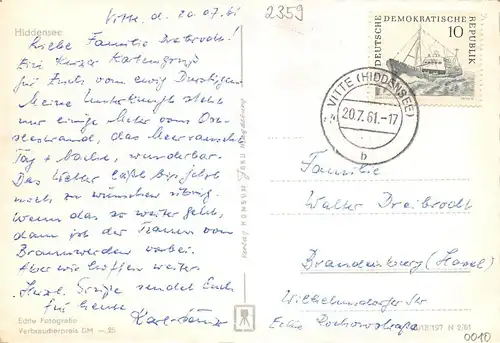 Vitte, d. 20.07.61
2359
Hiddensee
Liebe Familie Dreibrodt!
Ein kurzer Kartengruß
für Euch vom ewig Durstigen
Meine Unterkunft steht
nur einige Meter vom Ost-
seestrand, das Meer rauscht
Tag + Nacht, wunderbar.
Das Wetter läßt bis jetzt
noch zu wünschen übrig.
Wenn das so weiter geht,
dann ist der Traum vom
Braunwerden vorbei.
Aber wir hoffen weiter.
Herzl. Grüße sendet Euch
für heute Karl-Heinz
Echte Fotografie
Verbraucherpreis DM —.25
Verlag KONSUM
DEUTSCHE DEMOKRATISCHE REPUBLIK
10
VITTE (HIDDENSEE)
20.7.61.-17
b
Familie
Walter Dreibrodt
Brandenburg (Havel)
Wilhelmsdorfer Str
Ecke Rochowstraße
197 N 2/61
0010